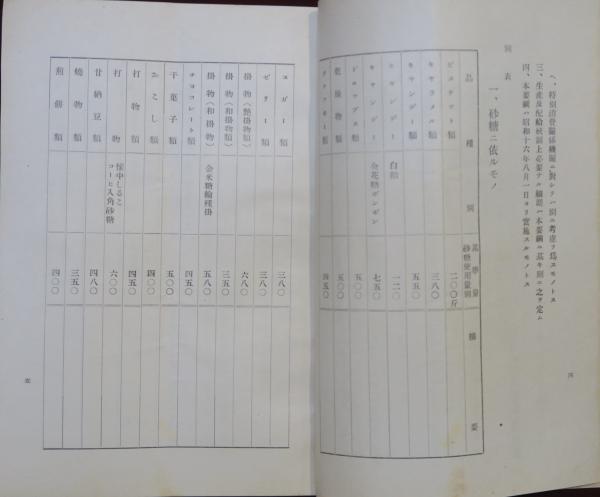 ヘ、特別消費團係機關ニ對シテハ別ニ考慮ヲ爲スモノトス
三、生産及配給統制上必要ナル細部ハ本要綱ニ基キ別ニ之ヲ定ム
四、本要綱ハ昭和十六年八月一日ヨリ實施スルモノトス
別表
一、砂糖ニ依ルモノ
品種別 基準量砂糖使用量別 摘要
ビスケット類 二〇〇斤
キヤラメル類 三八〇
キヤンデー類 五五〇
キヤンデー 白飴 一二〇
キヤンデー 金花糖ボンボン 七五〇
ドロップス類 五五〇
乾燥物類 五〇〇
類 四五〇
四
スガー類 三八〇
ゼリー類 三八〇
掛物(艶掛物)類 六八〇
掛物(和掛物)類 三五〇
掛物(和掛物) 金米糖輪種掛 五八〇
チヨコレート類 四五〇
干菓子類 五〇〇
おこし類 四〇〇
打物類 四五〇
打物 懐中しるこコーヒ入角砂糖 六〇〇
甘納豆類 四八〇
燒物類 三五〇
煎餅類 四〇〇
五